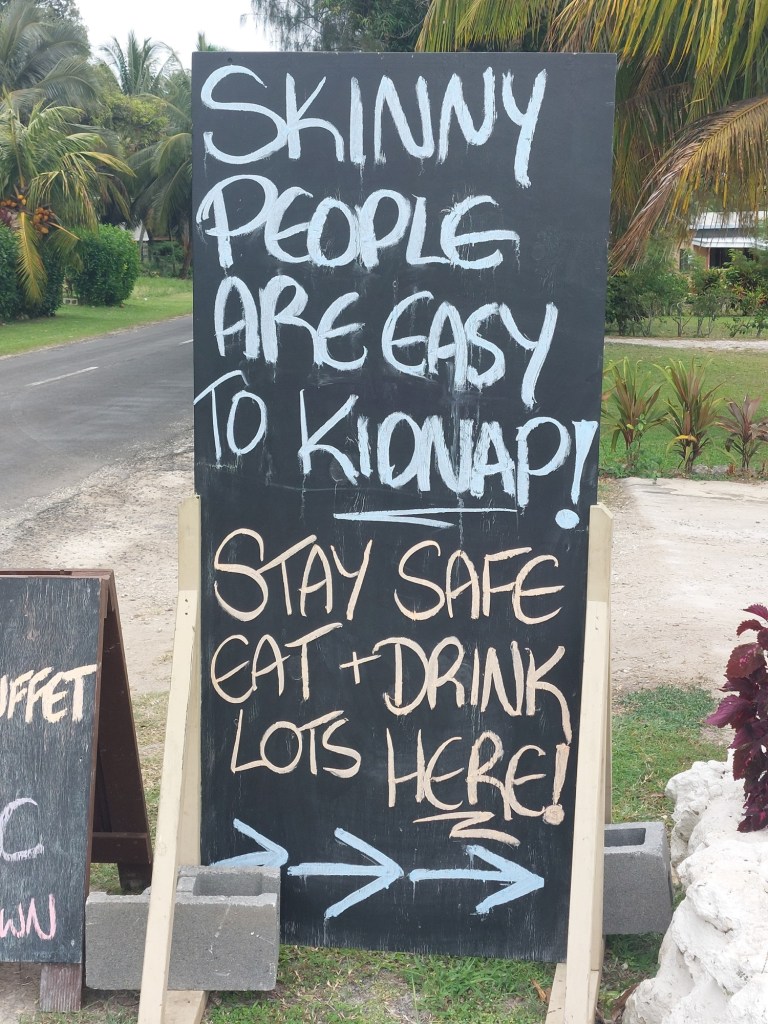 SKINNY
PEOPLE
ARE EASY
TO KIDNAP!
STAY SAFE
EAT + DRINK
LOTS HERE!